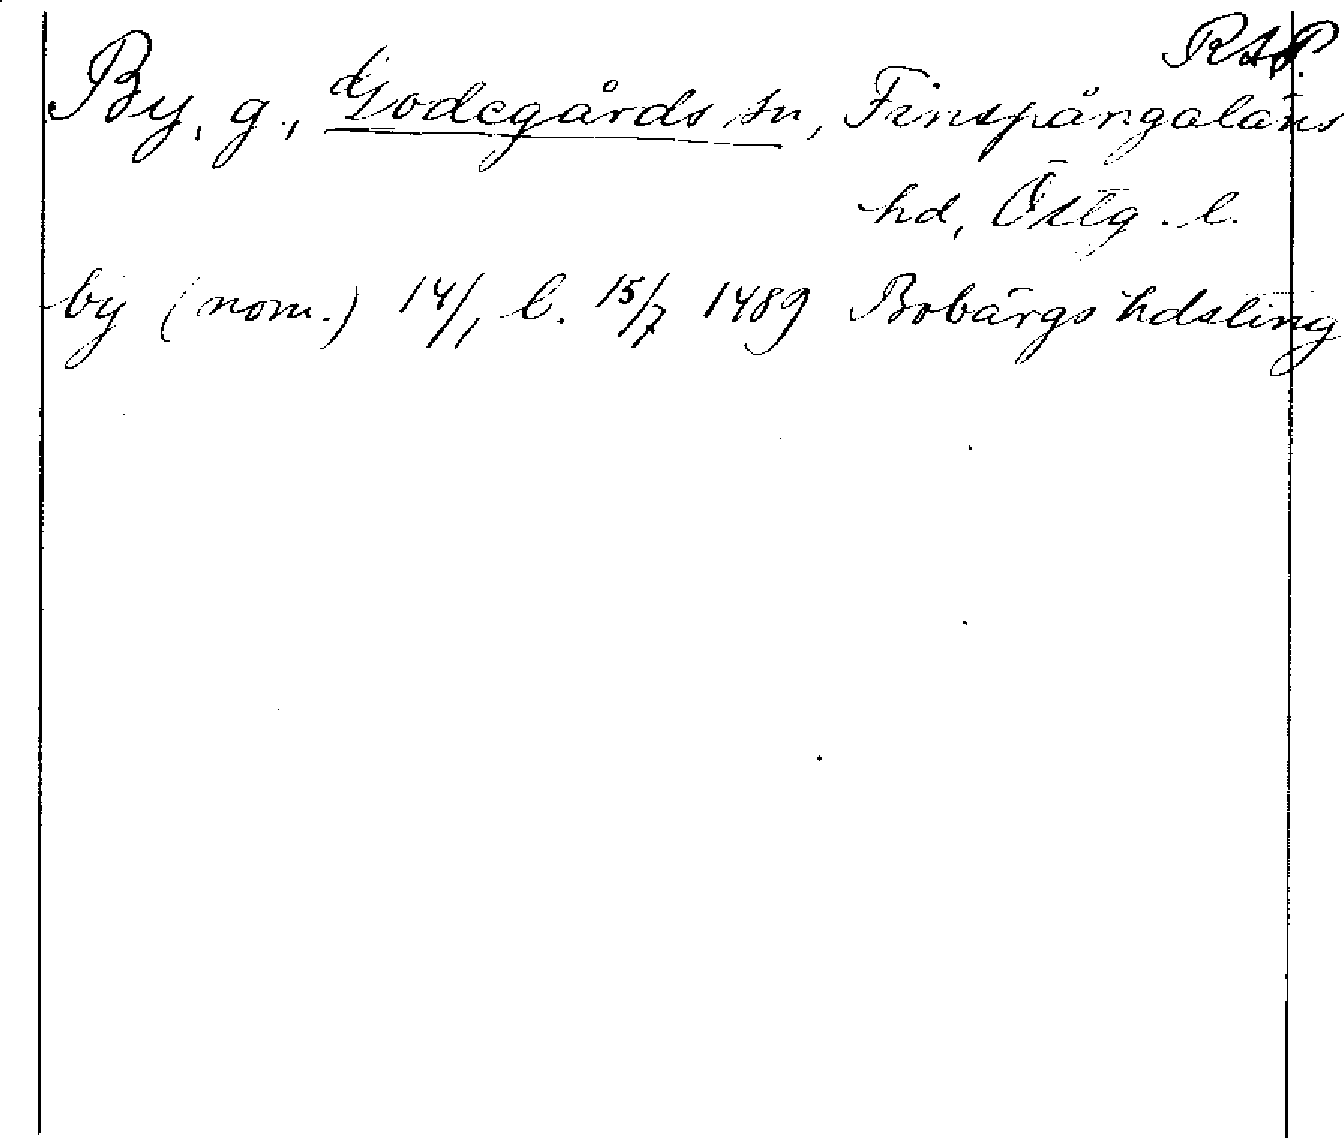 RAP.
By, g., Godegårds sn, Finspångaläns
hd, Östg. l.
by (nom.) 14/1 b. 15/7 1489 Bobärgs hdsting